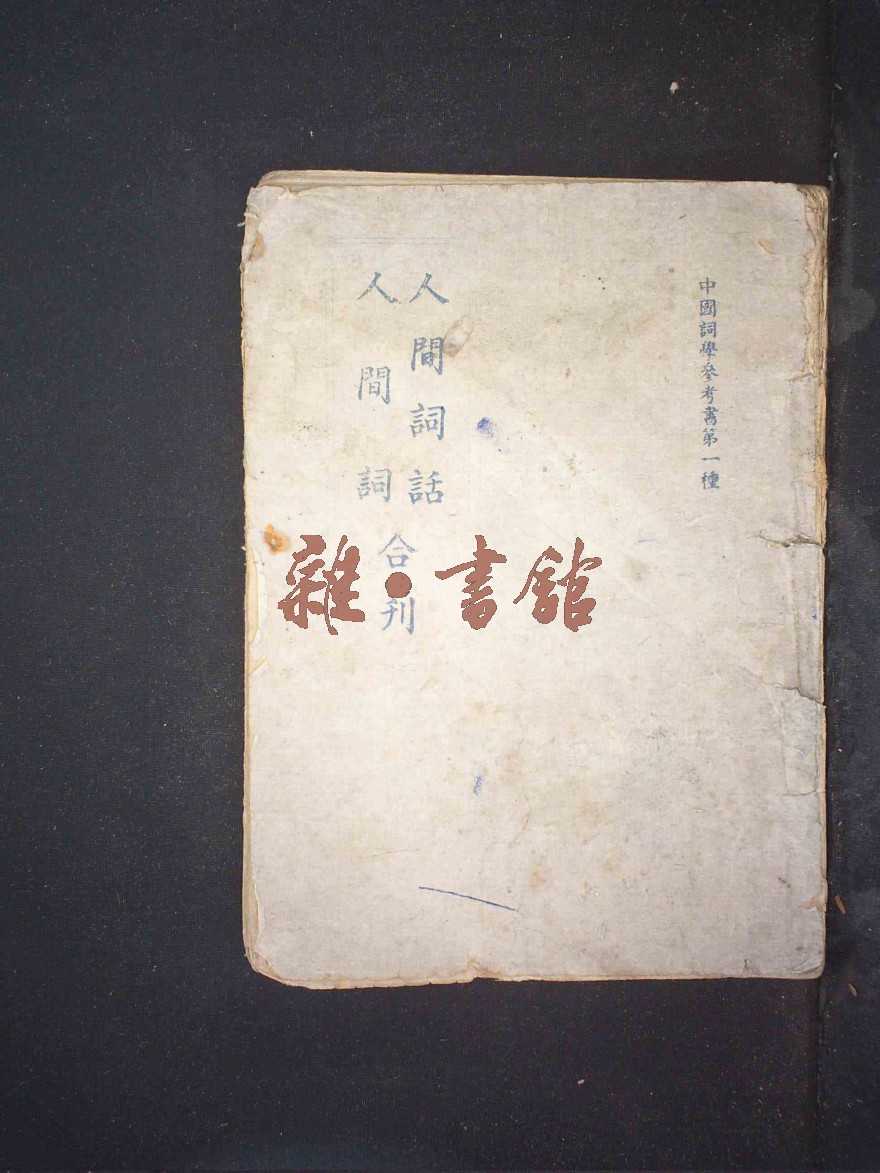 中國詞學參考書第一種
人間詞話
人間詞
合刊
雜·書館